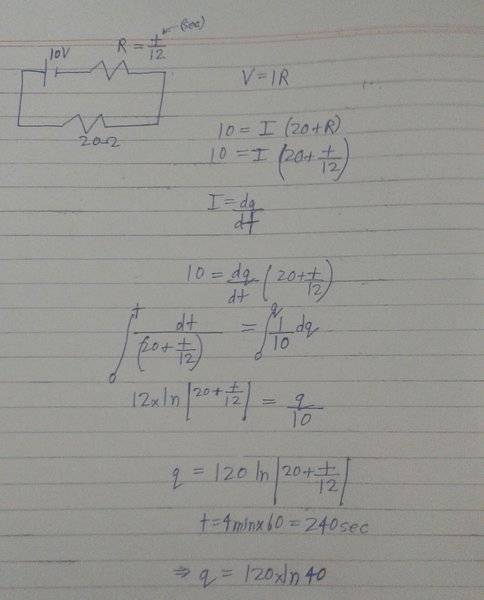 (sec)
10V R = t/12
20Ω
V = IR
10 = I (20+R)
10 = I (20+t/12)
I = dq/dt
10 = dq/dt (20+t/12)
∫₀ᵗ dt/(20+t/12) = ∫₀^q 1/10 dq
12x ln|20+t/12| = q/10
q = 120 ln|20+t/12|
t=4minx60 = 240sec
⇒ q = 120xln40